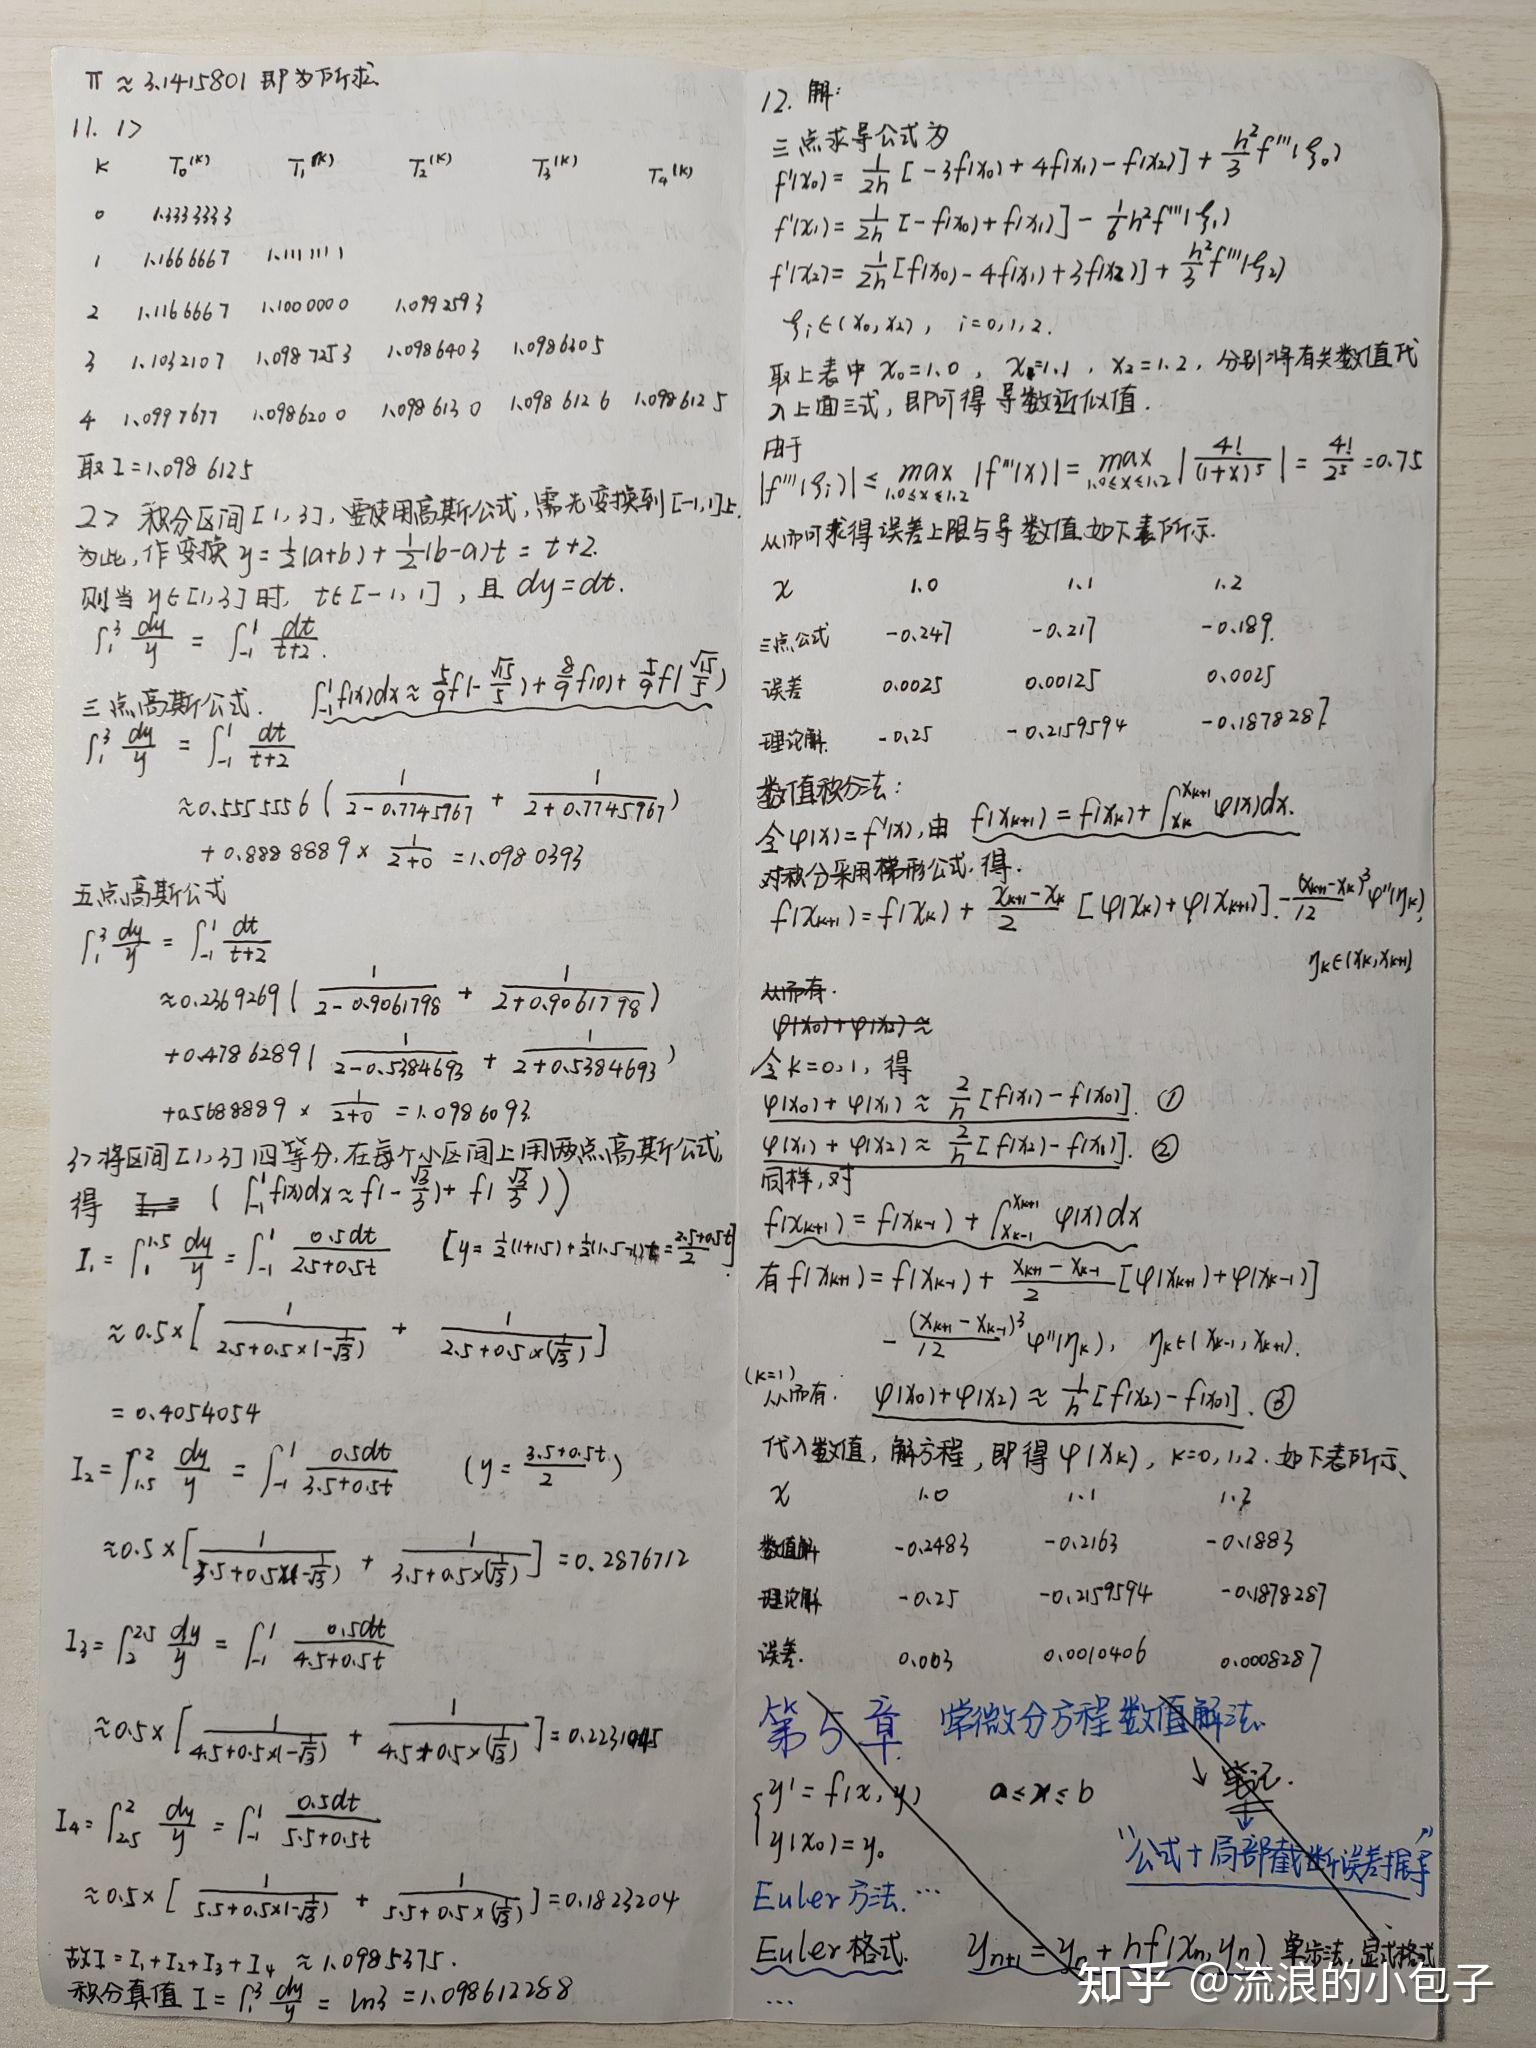 π ≈ 3.1415801 即为所求
11. 1>
K T₀⁽ᵏ⁾ T₁⁽ᵏ⁾ T₂⁽ᵏ⁾ T₃⁽ᵏ⁾ T₄⁽ᵏ⁾
0 1.3333333
1 1.1666667 1.1111111
2 1.1166667 1.1000000 1.0992593
3 1.1032107 1.0987253 1.0986403 1.0986305
4 1.0997677 1.0986200 1.0986130 1.0986126 1.0986125
取 I=1.0986125
2> 积分区间[1,3],要使用高斯公式,需先变换到[-1,1]上.
为此,作变换 y=½(a+b)+½(b-a)t = t+2.
则当 y∈[1,3]时, t∈[-1,1], 且 dy=dt.
∫₁³ dy/y = ∫₋₁¹ dt/(t+2).
三点高斯公式. ∫₋₁¹f(x)dx ≈ 5/9 f(-√15/5) + 8/9 f(0) + 5/9 f(√15/5)
∫₁³ dy/y = ∫₋₁¹ dt/(t+2)
≈0.5555556( 1/(2-0.7745967) + 1/(2+0.7745967) )
+0.8888889× 1/(2+0) =1.0980393
五点高斯公式
∫₁³ dy/y = ∫₋₁¹ dt/(t+2)
≈0.2369269( 1/(2-0.9061798) + 1/(2+0.9061798) )
+0.4786289( 1/(2-0.5384693) + 1/(2+0.5384693) )
+0.5688889 × 1/(2+0) =1.0986093.
3>将区间[1,3]四等分,在每个小区间上用两点高斯公式,
得 ( ∫₋₁¹f(x)dx ≈ f(-√3/3)+ f(√3/3) )
I₁=∫₁^1.5 dy/y = ∫₋₁¹ 0.5dt/(2.5+0.5t) [y=½(1+1.5)+½(1.5-1)t = (2.5+0.5t)/2]
≈0.5×[ 1/(2.5+0.5×(-1/√3)) + 1/(2.5+0.5×(1/√3)) ]
=0.4054054
I₂=∫₁.₅² dy/y = ∫₋₁¹ 0.5dt/(3.5+0.5t) (y= (3.5+0.5t)/2 )
≈0.5×[ 1/(3.5+0.5×(-1/√3)) + 1/(3.5+0.5×(1/√3)) ] =0.2876712
I₃=∫₂^2.5 dy/y = ∫₋₁¹ 0.5dt/(4.5+0.5t)
≈0.5×[ 1/(4.5+0.5×(-1/√3)) + 1/(4.5+0.5×(1/√3)) ]
I₄=∫₂.₅² dy/y = ∫₋₁¹ 0.5dt/(5.5+0.5t)
≈0.5×[ 1/(5.5+0.5×(-1/√3)) + 1/(5.5+0.5×(1/√3)) ] =0.1823204
故I=I₁+I₂+I₃+I₄ ≈1.0985375.
积分真值 I=∫₁³ dy/y = ln3 =1.098612288
12. 解:
三点求导公式为
f'(x₀)= 1/2h [-3f(x₀)+4f(x₁)-f(x₂)] + h²/3 f'''(ξ₀)
f'(x₁)= 1/2h [-f(x₀)+f(x₁)] - 1/6 h²f'''(ξ₁)
f'(x₂)= 1/2h [f(x₀)-4f(x₁)+3f(x₂)] + h²/3 f'''(ξ₂)
ξᵢ∈(x₀,x₂), i=0,1,2.
取上表中 x₀=1.0, x₁=1.1, x₂=1.2, 分别将有关数值代
入上面三式,即可得导数近似值.
由于
|f'''(ξᵢ)| ≤ max 1.0≤x≤1.2 |f'''(x)| = max 1.0≤x≤1.2 | 4!/(1+x)⁵ | = 4!/2⁵ =0.75
从而可求得误差上限与导数值如下表所示.
x 1.0 1.1 1.2
三点公式 -0.247 -0.217 -0.189.
误差 0.0025 0.00125 0.0025
理论解. -0.25 -0.2159594 -0.1878287
数值积分法:
令φ(x)=f'(x),由 f(xₖ₊₁)=f(xₖ)+∫_{xₖ}^{xₖ₊₁} φ(x)dx.
对积分采用梯形公式,得.
f(xₖ₊₁)=f(xₖ)+ (xₖ₊₁-xₖ)/2 [φ(xₖ)+φ(xₖ₊₁)] - (xₖ₊₁-xₖ)³/12 φ''(ηₖ),
ηₖ∈(xₖ,xₖ₊₁)
从而有.
φ(x₀)+φ(x₂)≈
令k=0,1,得
φ(x₀)+φ(x₁)≈ 2/h [f(x₁)-f(x₀)]. ①
φ(x₁)+φ(x₂)≈ 2/h [f(x₂)-f(x₁)]. ②
同样,对
f(xₖ₊₁)=f(xₖ₋₁)+∫_{xₖ₋₁}^{xₖ₊₁} φ(x)dx
有f(xₖ₊₁)=f(xₖ₋₁)+ (xₖ₊₁-xₖ₋₁)/2 [φ(xₖ₊₁)+φ(xₖ₋₁)]
- (xₖ₊₁-xₖ₋₁)³/12 φ''(ηₖ), ηₖ∈(xₖ₋₁,xₖ₊₁).
(k=1)
从而有. φ(x₀)+φ(x₂)≈ 1/h [f(x₂)-f(x₀)]. ③
代入数值,解方程,即得φ(xₖ), k=0,1,2.如下表所示、
x 1.0 1.1 1.2
数值解 -0.2483 -0.2163 -0.1883
理论解 -0.25 -0.2159594 -0.1878287
误差. 0.003 0.0010406 0.0008287
第5章 常微分方程数值解法
↓ 笔记.
{ y'=f(x,y) a≤x≤b
y(x₀)=y₀
↓
"公式+局部截断误差推导"
Euler方法. …
Euler格式. yₙ₊₁=yₙ+hf(xₙ,yₙ) 单步法,显式格式
…
知乎 @流浪的小包子